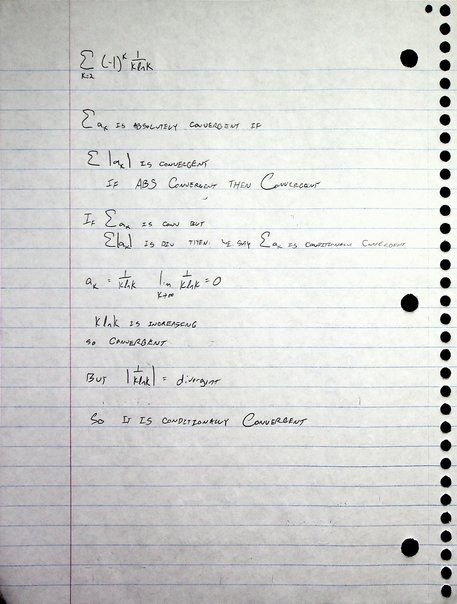 ∑ (-1)^k 1/(k ln k)
k=2
∑ a_k IS ABSOLUTELY CONVERGENT IF
∑ |a_k| IS CONVERGENT
IF ABS CONVERGENT THEN CONVERGENT
IF ∑ a_k IS CONV BUT
∑|a_k| IS DIV THEN WE SAY ∑ a_k IS CONDITIONALLY CONVERGENT
a_k = 1/(k ln k) lim k→∞ 1/(k ln k) = 0
k ln k IS INCREASING
SO CONVERGENT
BUT |1/(k ln k)| = divergent
SO IT IS CONDITIONALLY CONVERGENT